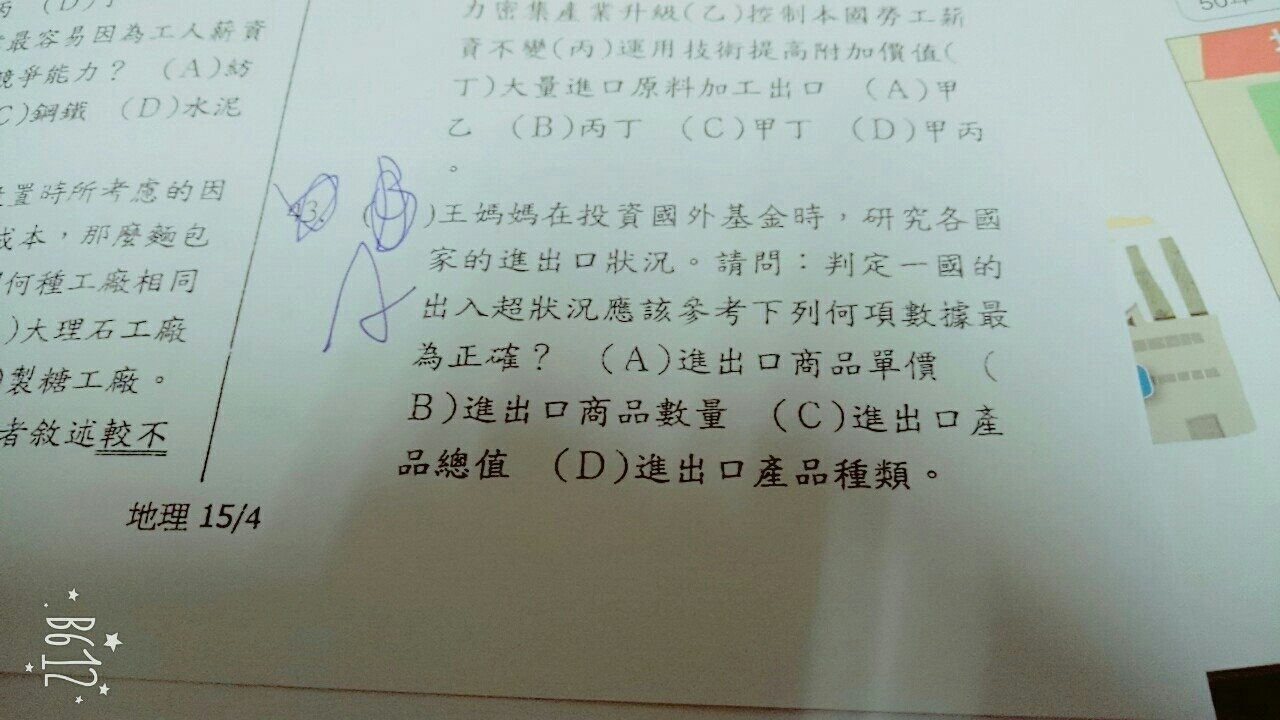 最容易因為工人薪資
競爭能力？ (A)紡
C)鋼鐵 (D)水泥
置時所考慮的因
成本，那麼麵包
何種工廠相同
)大理石工廠
)製糖工廠。
者敘述較不
地理 15/4
力密集產業升級(乙)控制本國勞工薪
資不變(丙)運用技術提高附加價值(
丁)大量進口原料加工出口 (A)甲
乙 (B)丙丁 (C)甲丁 (D)甲丙
。
43. (B)王媽媽在投資國外基金時，研究各國
A
家的進出口狀況。請問：判定一國的
出入超狀況應該參考下列何項數據最
為正確？ (A)進出口商品單價 (
B)進出口商品數量 (C)進出口產
品總值 (D)進出口產品種類。
B612